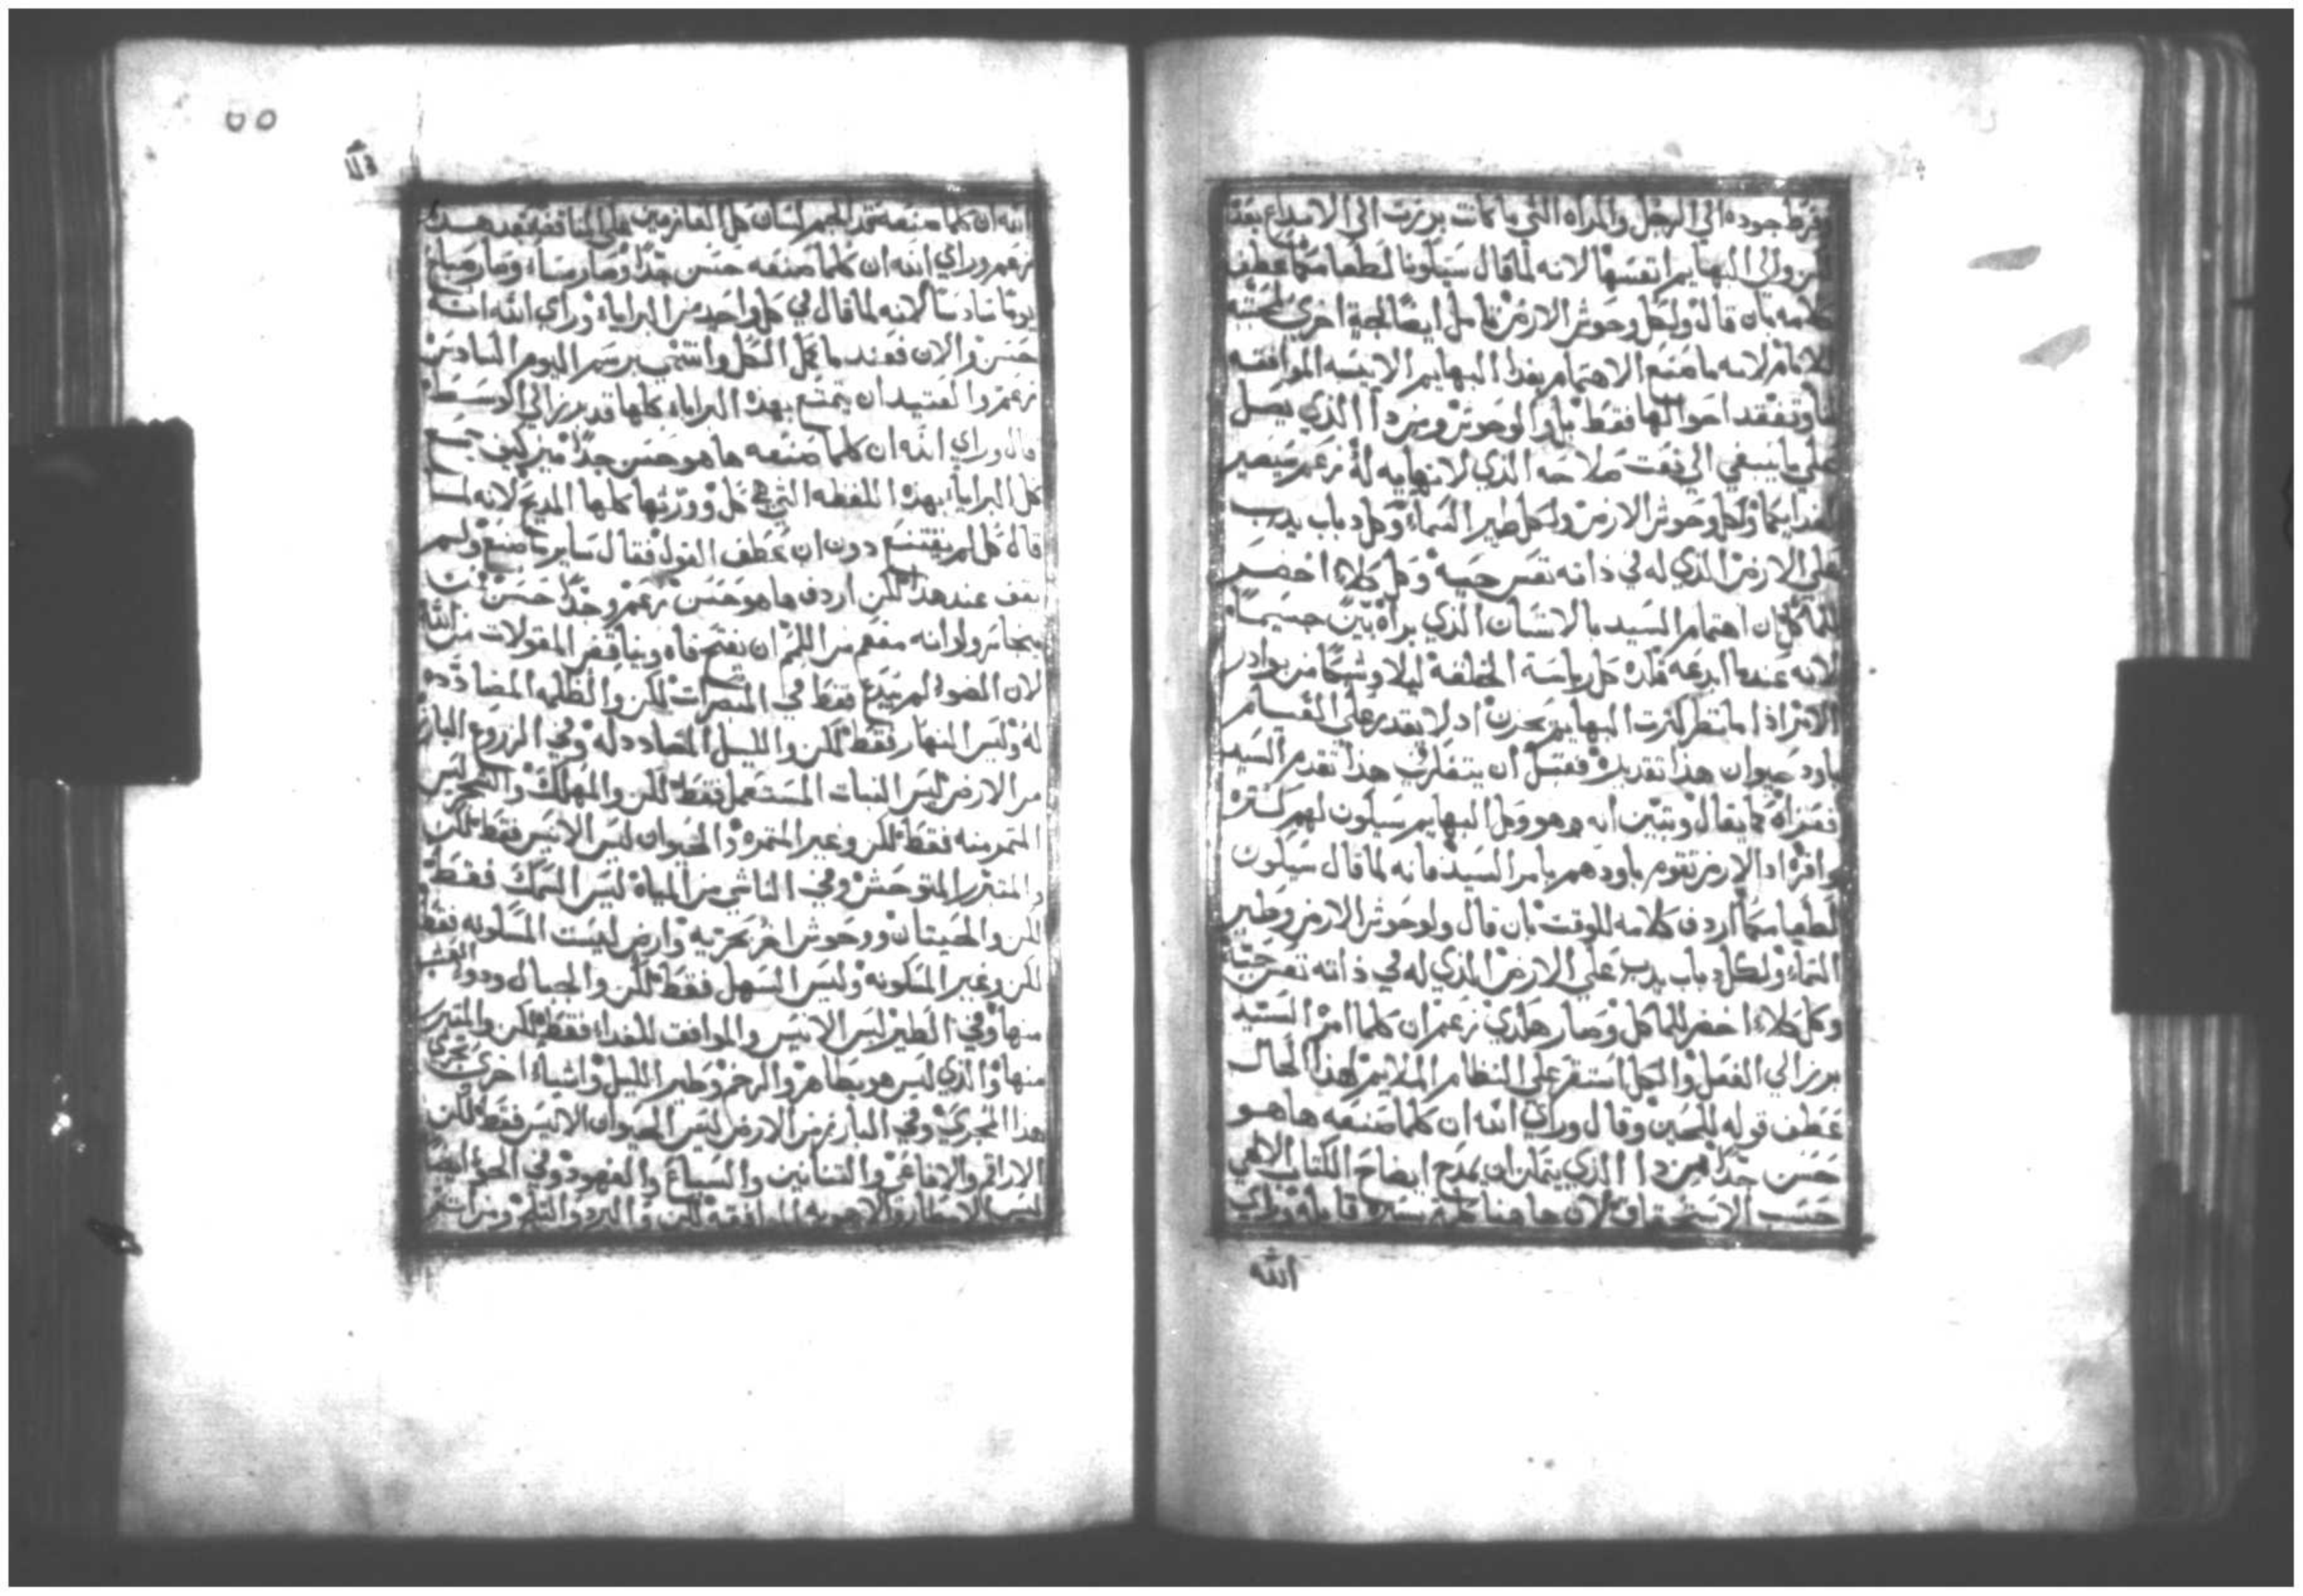 وفرط جوده الي الرجل والمراه التي ما كانت برزت الي الابداع بعد
لكن والي البهايم انفسها لانه لما قال سيكونا لطعامكما عطف
كلامه بان قال ولكل وحوش الارض تامل ايضا لجة اخري
لانه ما صنع الاهتمام بغذا البهايم الانيسه الموافقه
وتفقد احوالها فقط بل والوحوش ومن ذا الذي يصل
علي ما ينبغي الي نعت صلاحه الذي لانهايه له زعم سيصير
لغدايكما ولكل وحوش الارض ولكل طير السماء وكل دباب يدب
علي الارض الذي له في ذاته نفس حيه وكل كلاء اخضر
للماكل ان اهتمام السيد بالانسان الذي براه بين جسيما
لانه عندما ابدعه قلده كل رياسة الخلقة ليلا وشيكا من بوادر
الامر اذا ما نظر كثرت البهايم يحزن اذ لا يقدر علي القيام
باود حيوان هذا تقديره فقبل ان يتفكر في هذا تقدم السيد
فعزاه كما يقال وتبين انه وهو وكل البهايم سيكون لهم كثرة
وافره اذ الارض تقوم باودهم بامر السيد فانه لما قال سيكون
لطعامكما اردف كلامه للوقت بان قال ولوحوش الارض وطير
السماء ولكل دباب يدب علي الارض الذي له في ذاته نفس حية
وكل كلاء اخضر للماكل وصار هكذي زعم ان كلما امر السيد
برز الي الفعل والكل استقر علي النظام الملايم لهذا الحال
عطف قوله للحين وقال وراي الله ان كلما صنعه ها هو
حسن جدا فمن ذا الذي يتمكن ان يمدح ايضاح الكتاب الالهي
حسب الاستحقاق لان ها هنا بكلمة يسيرة قايله وراي
الله
٥٥
الله ان كلما صنعه سد لجم لسان كل العازمين علي المنافقه بعد هذا
زعم وراي الله ان كلما صنعه حسن جدا وصار مساء وصار صباح
يوما سادسا لانه لما قال في كل واحد من البرايا وراي الله انه
حسن والان فعند ما عمل الكل وانتهي برسم اليوم السادس
زعم والعتيد ان يتمتع بهذه البرايا كلها قد برز الي الوسط
قال وراي الله ان كلما صنعه ها هو حسن جدا ميز كيف جمع
كل البرايا بهذه اللفظه التي هي كل وورثها كلها المديح لانه لما
قال كل لم يقتنع دون ان عطف القول فقال ساير ما صنع ولم
يقف عند هذا لكن اردف ها هو حسن زعم وجدا حسن فمن
يتجاسر ولو انه مفعم من اللمم ان يفتح فاه ويناقض المقولات من الله
لان الضوء لم يبدع فقط في المبصرات لكن والظلمه المضادده
له وليس النهار فقط لكن والليل المضادد له وفي الزروع البارز
من الارض ليس النبات المستعمل فقط لكن والمهلك والشجر ليس
المثمر منه فقط لكن وغير المثمره والحيوان ليس الانيس فقط لكن
والمتبرر المتوحش وفي الناشي من المياه ليس السمك فقط
لكن والحيتان ووحوش اخر بحريه وارض ليست المسكونه فقط
لكن وغير المسكونه وليس السهل فقط لكن والجبال
منها وفي الطير ليس الانيس والموافق للغداء فقط لكن والمتبرر
منها والذي ليس هو بطاهر والرخم وطير الليل واشياء اخري تجري
هذا المجري وفي البارز من الارض ليس الحيوان الانيس فقط لكن
الاراقم والافاعي والتنانين والسباع والفهود وفي الجو ايضا
ليس الامطار والاهويه الموافقه لكن والبرد والثلج ومن استقر